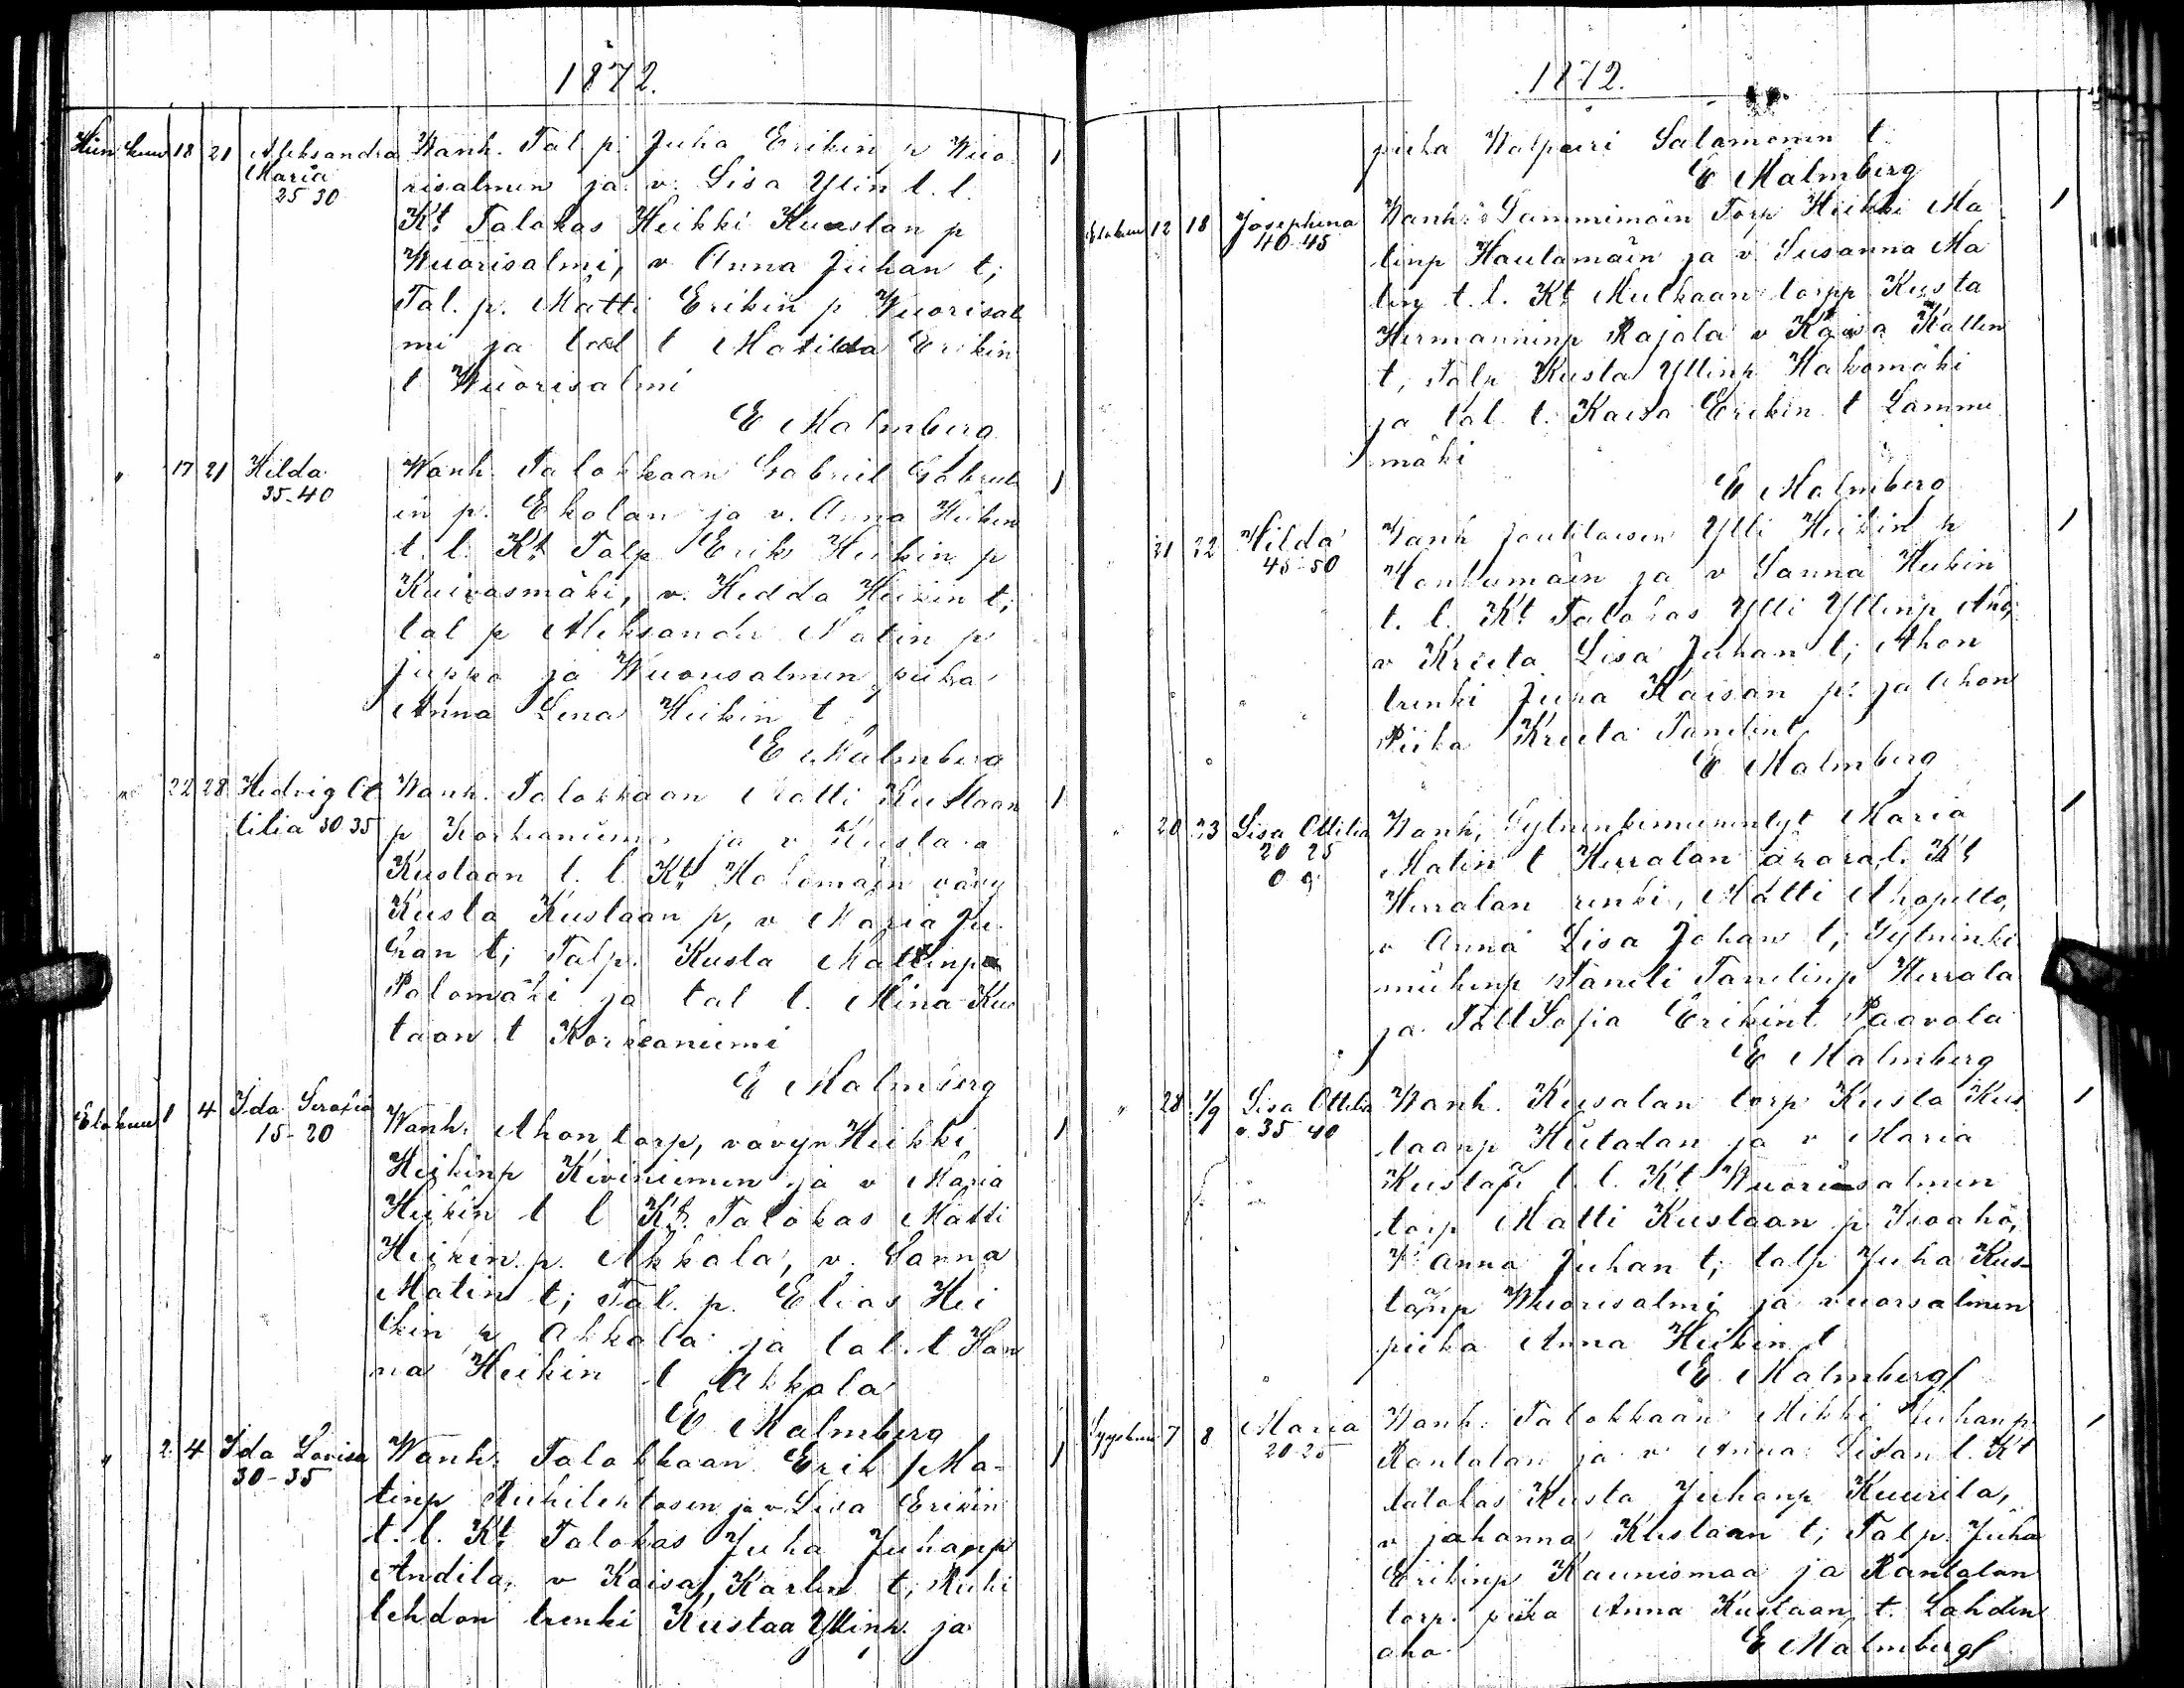 1872.
Hein kuu 18 21 Aleksandra Wanh. Tal p. Juha Erikin p Wuo
Maria risalmen ja v. Lisa Ylin t. l.
25 30
Kt Talokas Heikki Kustan p
Wuorisalmi, v Anna Juhan t;
Tal. p. Matti Erikin p Wuorisal
mi ja tal t Matilda Erikin
t Wuorisalmi
E Malmberg
" 17 21 Hilda Wanh. Talokkaan Gabriel Gabriel
35-40 in p. Ekolan ja v. Anna Heikin
t. l. Kt Talp Erik Heikin p
Kuivasmäki, v. Hedda Heikin t;
tal p Aleksander Matin p
Juppo ja Wuorisalmen piika
Anna Lena Heikin t
E Malmberg
" 22 28 Hedvig Ot Wanh. Talokkaan Matti Kustaan
tilia 30 35 p Korkeaniemen ja v Kustava
Kustaan t. l. Kt Halomäen vävy
Kusta Kustaan p, v Maria Ju
han t; Talp. Kusta Matinp
Palomäki ja tal t. Mina Kus
taan t Korkeaniemi
E Malmberg
Elokuu 1 4 Ida Serafia
15-20 Wanh. Ahon torp, vävyn Heikki
Heikinp Kiviniemen ja v Maria
Heikin t l Kt. Talokas Matti
Heikin p. Akkala, v. Sanna
Matin t; Tal. p. Elias Hei
kin p Akkala ja tal. t Han
na Heikin t Akkala
E Malmberg
" 2 4 Ida Lovisa Wanh. Talokkaan Erik Ma-
30-35 tinp Riihilehtosen ja v Lisa Erikin
t. l. Kt Talokas Juha Juhanp
Andila, v Kaisa Karlin t; Riihi
lehdon trenki Kustaa Yllinp. ja
1872.
piika Walpuri Salamonin t.
E Malmberg
Elokuu 12 18 Josephina Wanh. Lammimäin Torp Heikki Ma
40-45 tinp Hautamäin ja v Susanna Ma
tin t. l. Kt Mulkaan torpp Kusta
Hermanninp Rajala v Kaisa Kallen
t; Talp Kusta Yllinp Hakomäki
ja tal t. Kaisa Erikin t Lammi
mäki
E Malmberg
21 22 Hilda Wanh Joutilaisen Ylli Heikin p
45-50 Honkamäin ja v Sanna Heikin
t. l. Kt Talokas Ylli Yllinp Aho,
v Kreeta Lisa Juhan t; Ahon
trenki Juha Kaisan p. ja Ahon
Piika Kreeta Tanelint
E Malmberg
" 20 23 Lisa Ottilia Wanh, Maria
20 25 Matin t Herralan Kt
Herralan renki, Matti Ahopelto,
v Anna Lisa Johan t;
Taneli Tanelinp Herrala
ja Talt Sofia Erikint Paavola
E Malmberg
" 28 1/9 Lisa Ottilia Wanh. Kusalan torp Kusta Kus
v. 35 40 taanp Hietalan ja v Maria
Kustaan t. l. Kt Wuorisalmen
torp Matti Kustaan p Isoaho,
v anna Juhan t; talp Juha Kus
taanp Wuorisalmi ja vuorsalmen
piika Anna Heikin t
E Malmberg
Syyskuu 7 8 Maria Wanh. Talokkaan Mikki Juhanp
20-25 Rantalan ja v Anna Lisan l. Kt
talokas Kusta Juhanp Kuurila,
v johanna Kustaan t; Talp. Juha
Erikinp Kaunismaa ja Rantalan
torp. piika Anna Kustaan t. Lahden
aho.
E Malmberg